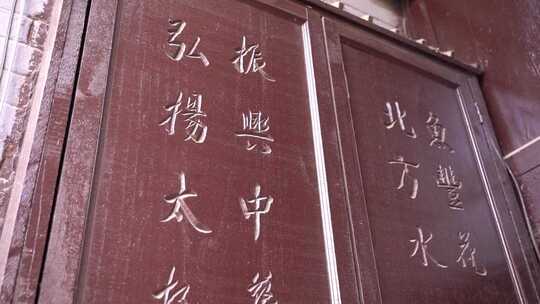 魚豐花
北方水
振興中
弘揚太